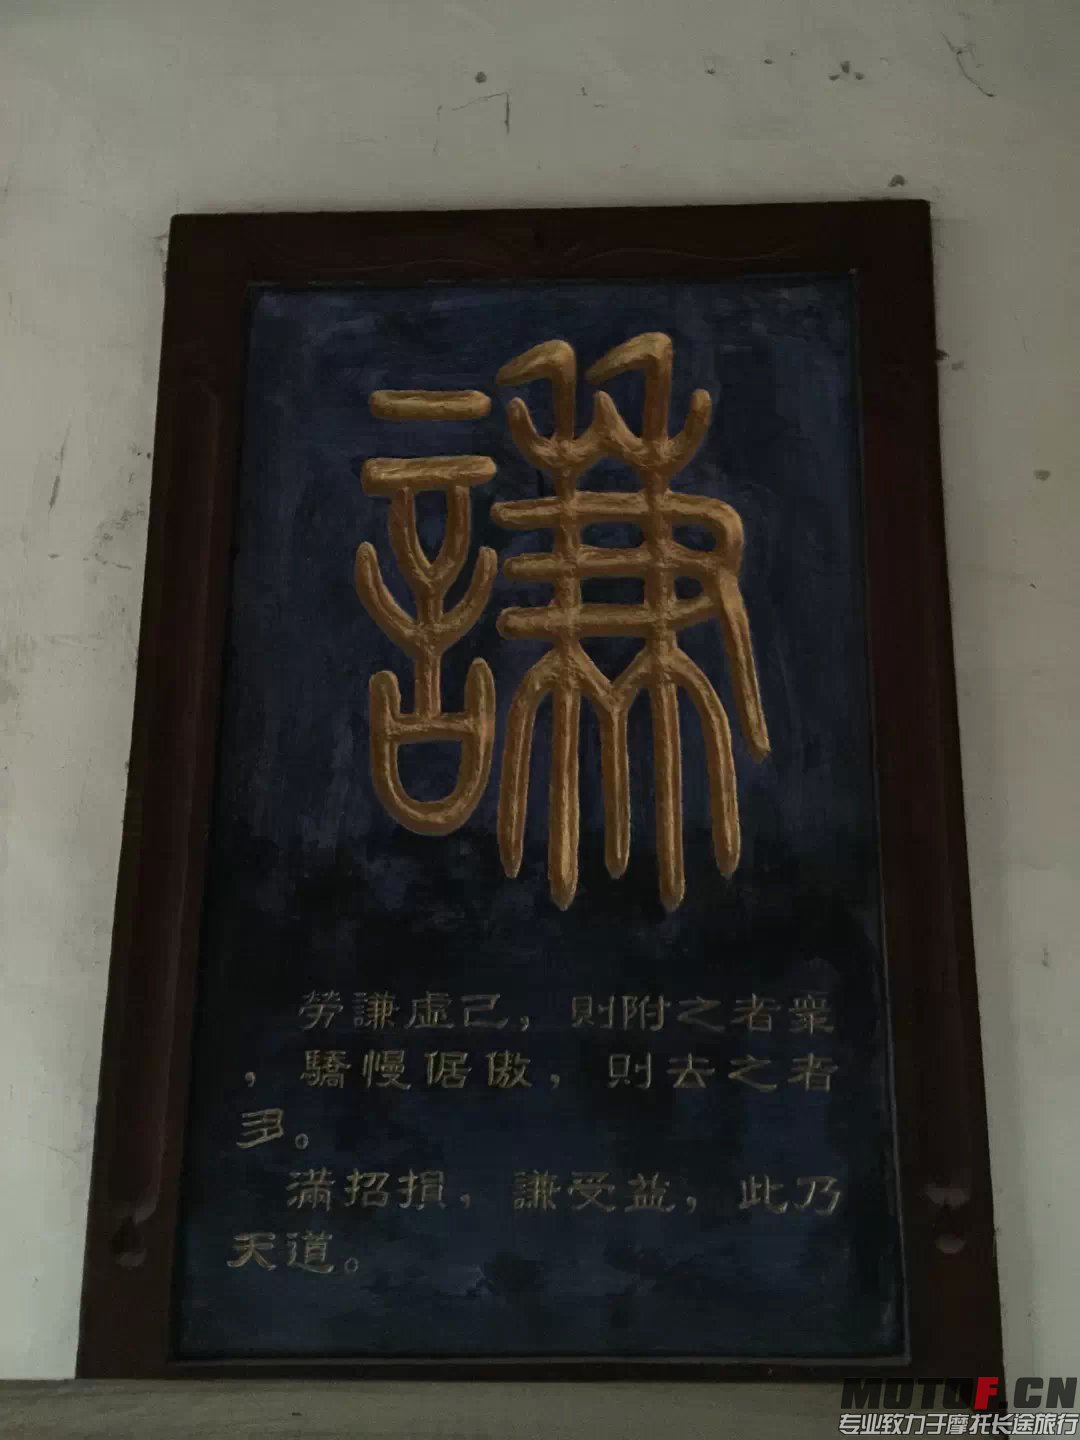 謙
勞謙虛己，則附之者衆
，驕慢倨傲，則去之者
多。
滿招損，謙受益，此乃
天道。
MOTOF.CN
专业致力于摩托长途旅行